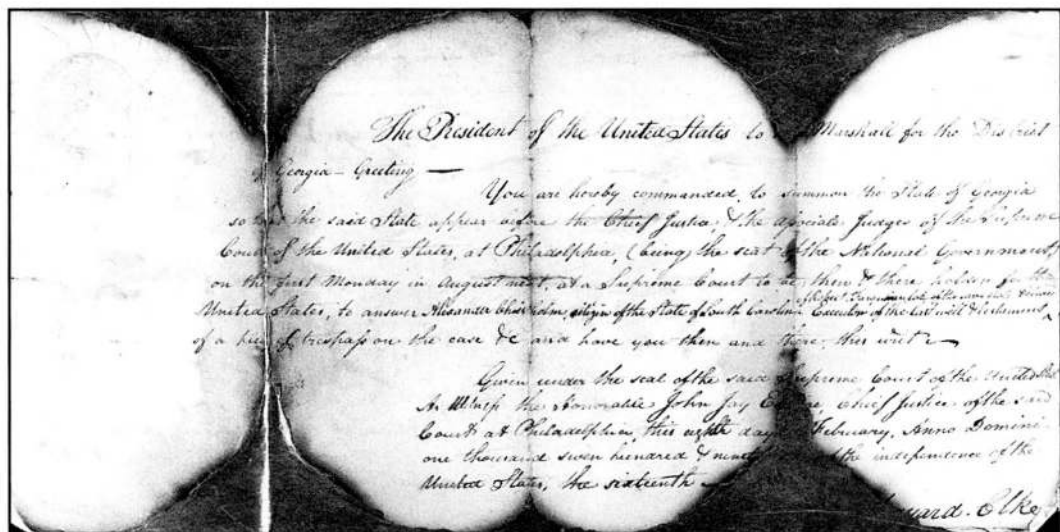 The President of the United States to Marshall for the District
of Georgia – Greeting —
You are hereby commanded, to summon the State of Georgia
so that the said State appear before the Chief Justice, & the associate Judges of the Supreme
Court of the United States, at Philadelphia, (being) the seat of the National Government,
on the first Monday in August next, at a Supreme Court to be then & there holden for the
of Robert Farquhar late of the same State deceased
United States, to answer Alexander Chisholm, citizen of the State of South Carolina Executor of the last will & testament
of a plea of trespass on the case &c and have you then and there this writ —
Given under the seal of the said Supreme Court of the United
As Witness the Honorable John Jay Esquire, Chief Justice of the said
Court at Philadelphia, this eighth day February, Anno Domini
one thousand seven hundred & ninety of the independence of the
United States, the sixteenth